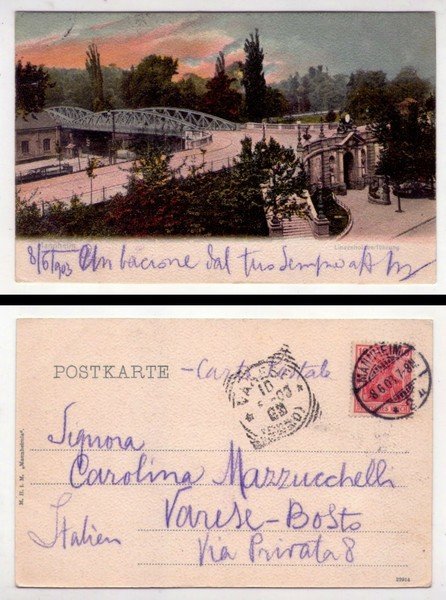 Mannheim
Lindenhofüberführung
8/6 1903 Un bacione dal tuo sempre aff
POSTKARTE - Carte Postale
MANNHEIM
8.6.03. 7-8N.
VARESE
10
03
Signora
Carolina Mazzucchelli
Varese-Bosto
Italien
Via Privata 8
M. H. i. M. „Mannheimia“.
22914